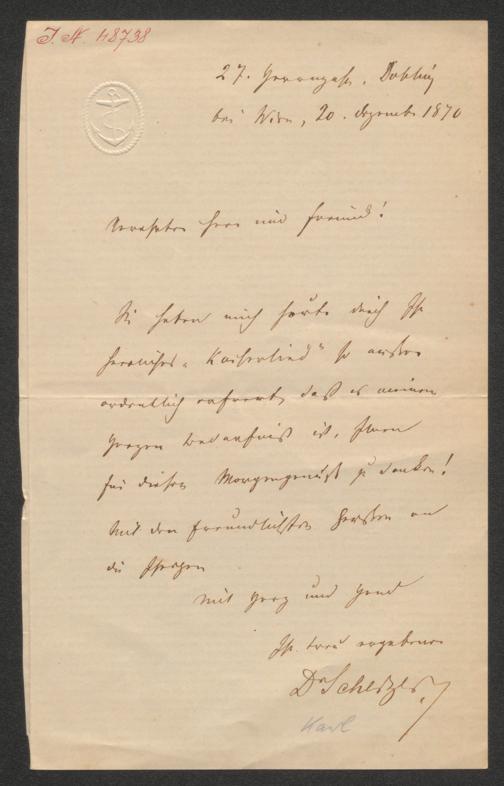 J. N. 48738
27. Herrengasse, Döbling
bei Wien, 20. Dezember 1870
Verehrter Herr und Freund!
Sie haben mich heute durch Ihr
herrliches „Kaiserlied“ so außer
ordentlich erfreut, daß es meinem
Herzen Bedürfniß ist, Ihnen
für diesen Morgengenuß zu danken!
Mit den freundlichsten Grüßen an
die Ihrigen
mit Herz und Hand
Ihr treu ergebener
Dr Scherzer
Karl